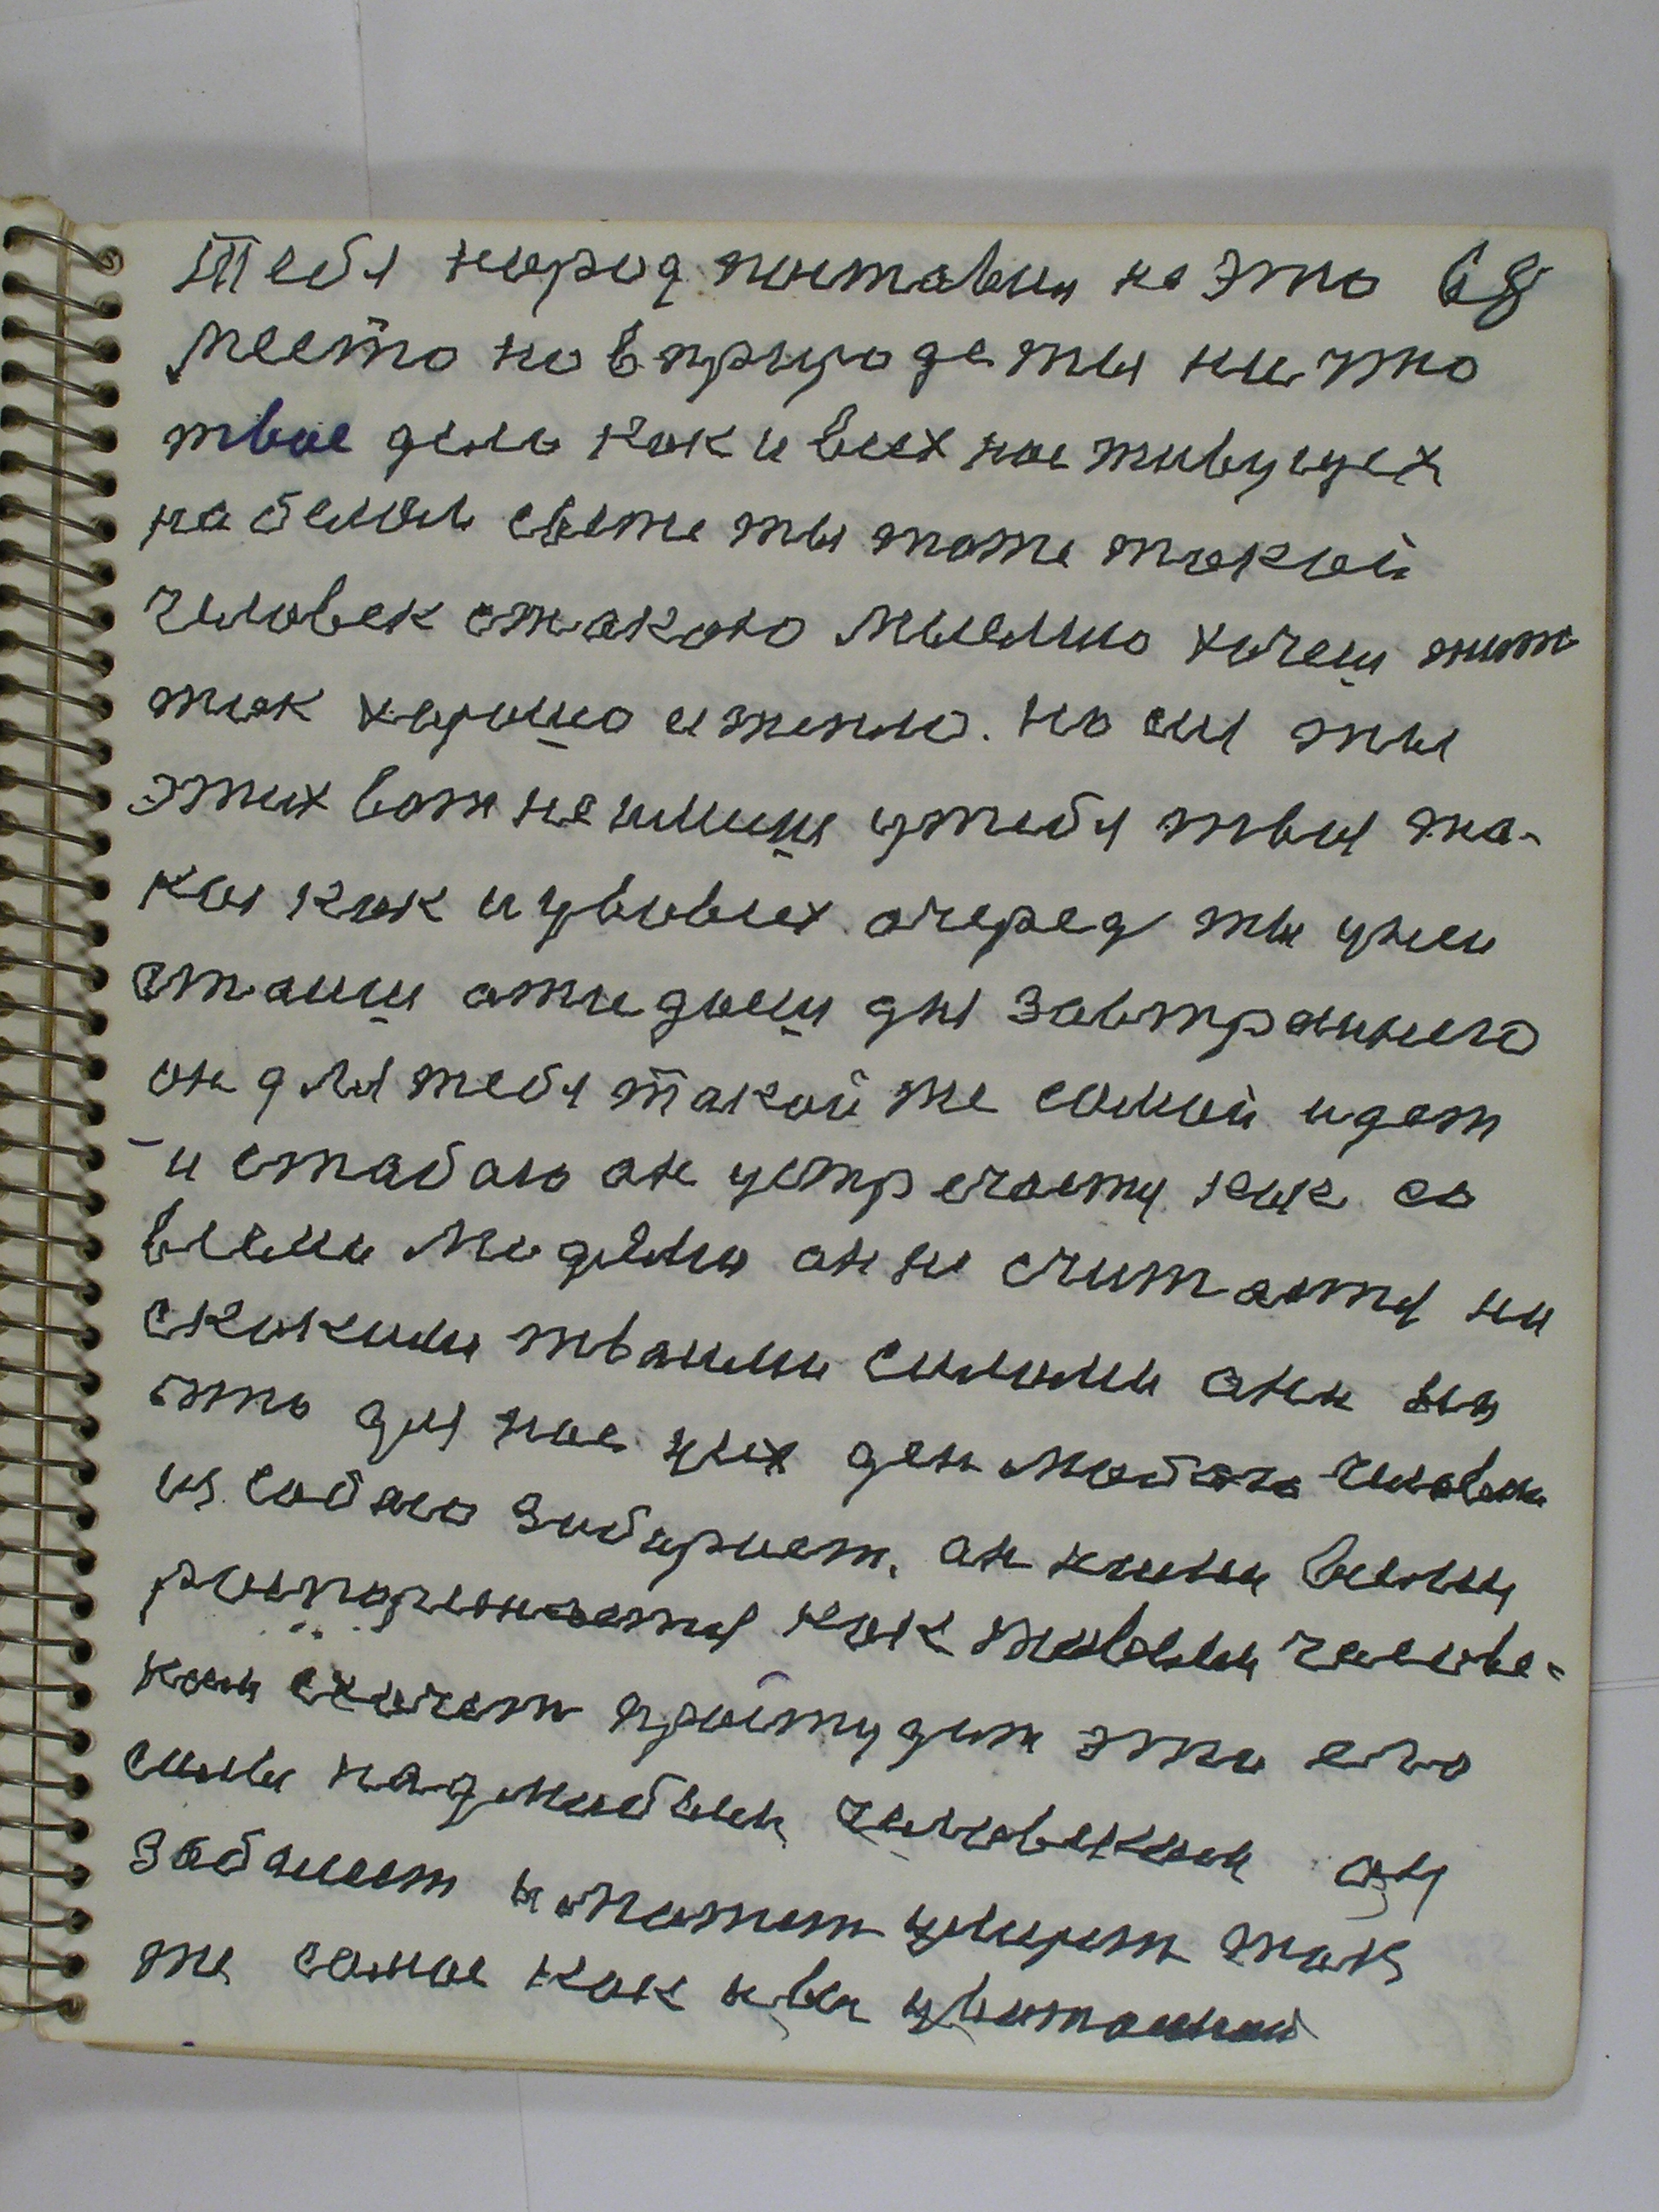 Тебя народ поставил на это 68
место но в природе ты ни что
твое дело как и всех нас живущех
на белом свете ты тоже такой
человек стакою мыслию хочеш жит
так хорошо и тепло. но сил ты
этих вот не имииш утебя твая та-
кая как и увсех очеред ты уней
стаиш ожидаеш дня завтрашнего
он для тебя такой же самой идет
и стабою он устречаетца как со
всеми людями он не считается ни
скакими тваими силами они
это для нас усех ден любого человека
из собою забирает. он сними всеми
распоряжается как живым челове-
кам схочет простудит это его
силы над любым человеком он
заболеет и потом умирает так
же самое как и вы